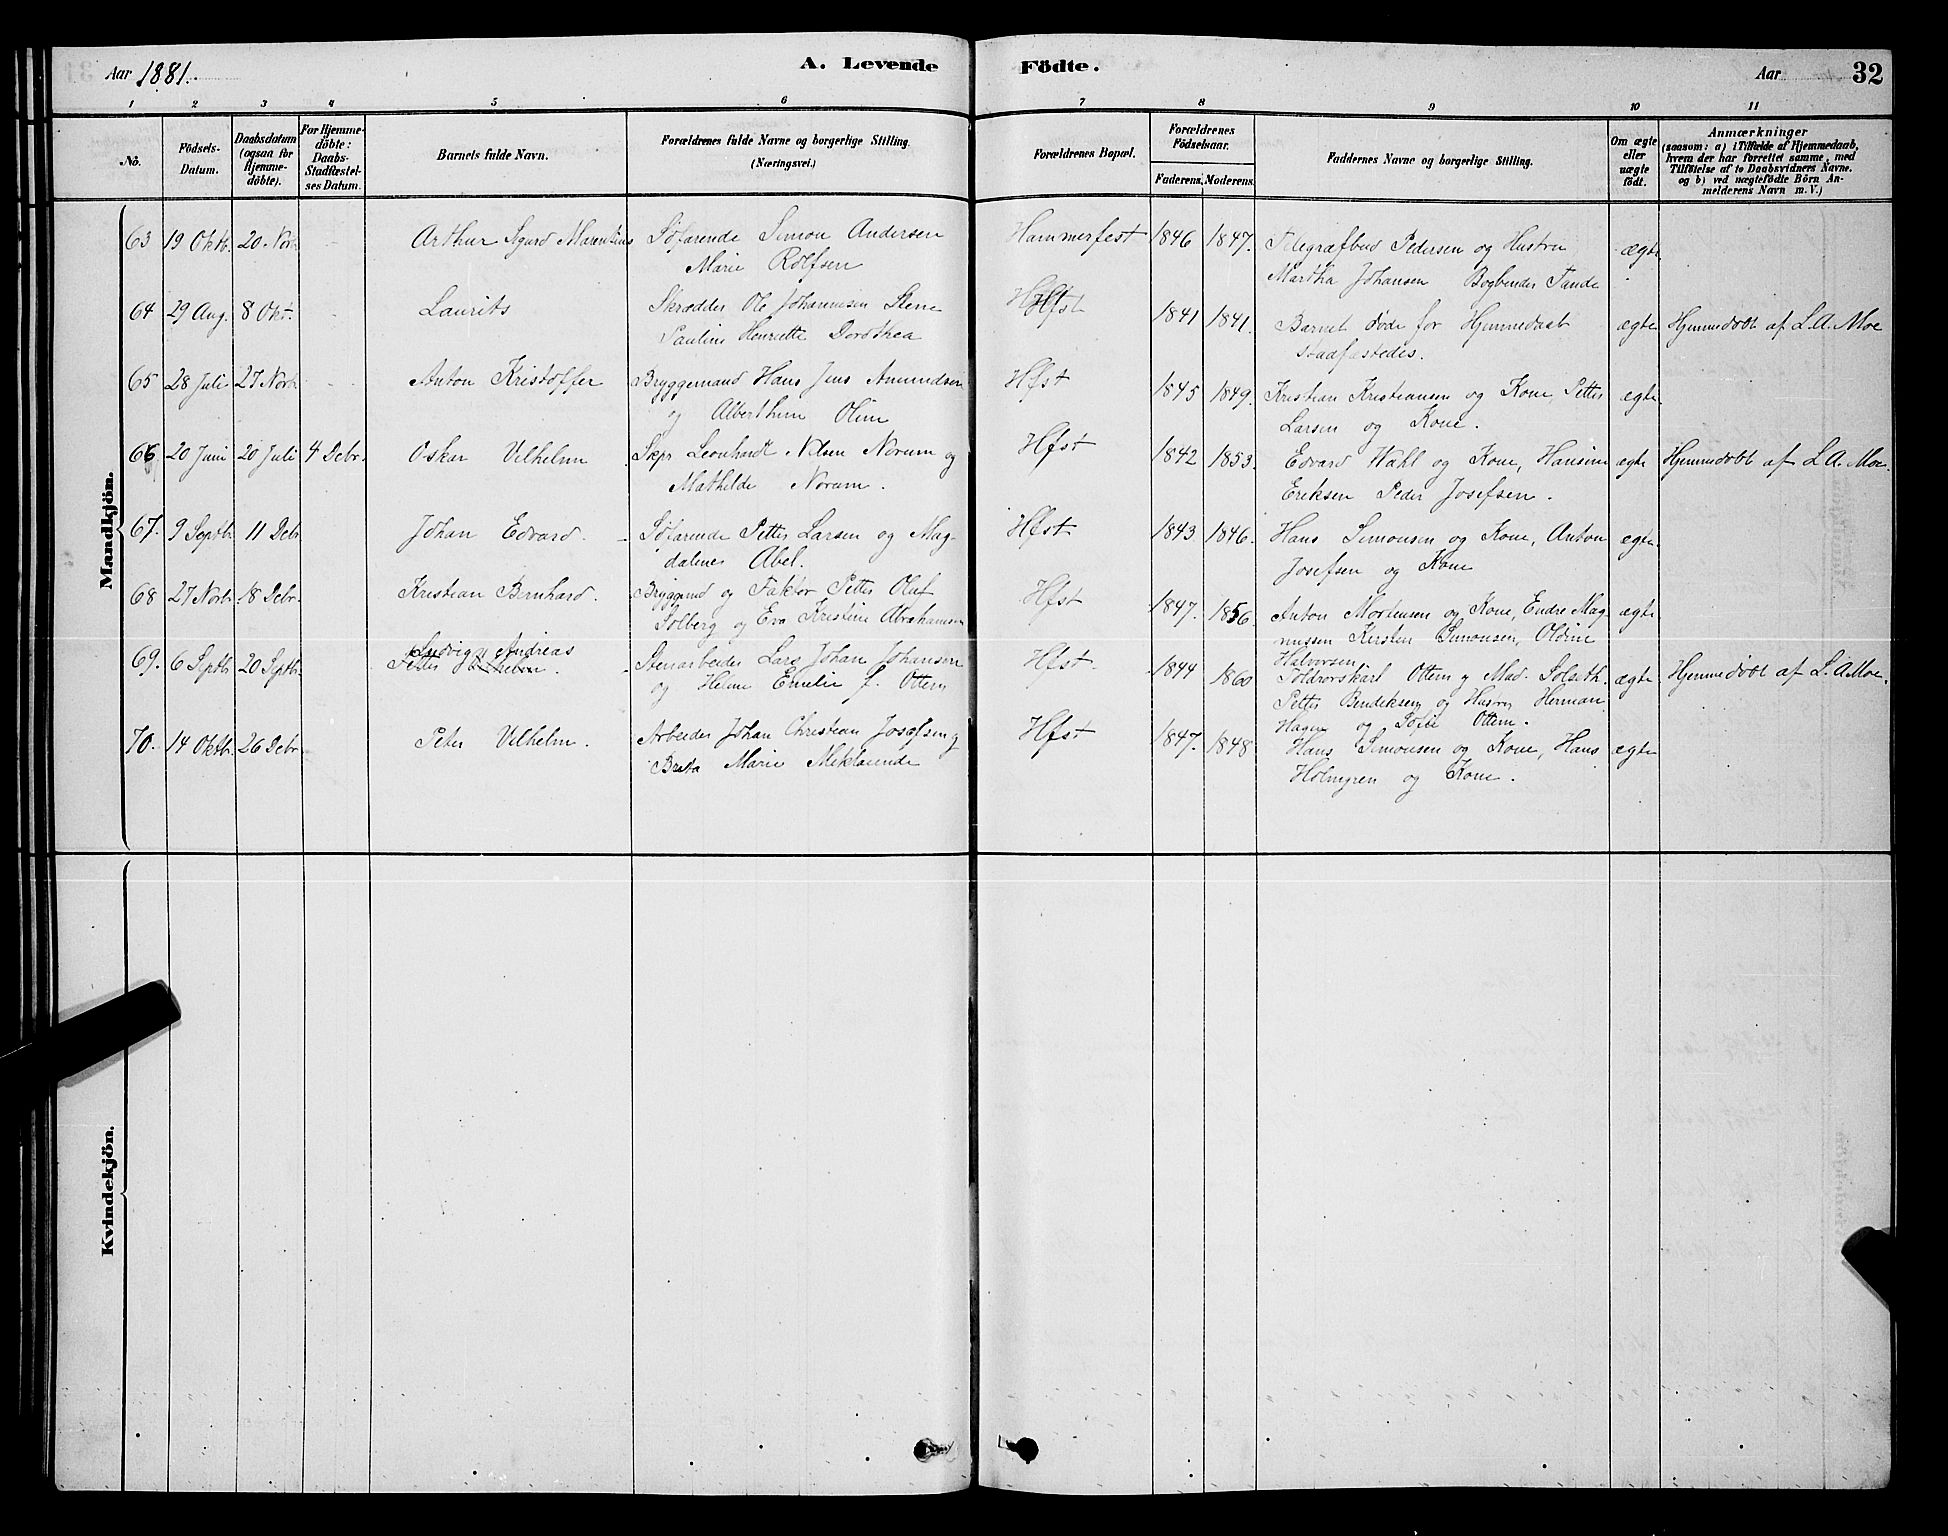 Aar 1881. A. Levende Födte. Aar 32
1 2 3 4 5 6 7 8 9 10 11
No. Födsels-Datum. Daabsdatum (ogsaa for Hjemme-döbte). For Hjemme-döbte: Daabs-Stadfæstel-ses Datum. Barnets fulde Navn. Forældrenes fulde Navne og borgerlige Stilling. (Næringsvei.) Forældrenes Bopæl. Forældrenes Födselsaar. Faderens. Moderens. Faddernes Navne og borgerlige Stilling. Om ægte eller uægte födt. Anmærkninger (saasom: a) i Tilfælde af Hjemmedaab, hvem der har forrettet samme, med Tilföielse af to Daabsvidners Navne. og b) ved uægtefödte Börn An-melderens Navn m. V.)
Mandkjön.
63 19 Oktb. 20. Nov. Arthur Sigurd Marentius Söfarende Simon Andersen Hammerfest 1846 1847. Telegrafbud Pedersen og Hustru ægte.
Marie Rolfsen Martha Johansen Bogbinder Tande
64 29 Aug. 8 Okt. Laurits Skrædder Ole Johannesen Stene Hfst 1841 1841. Barnet døde før Hjemmedaab ægte Hjemmedøbt af L. A. Moe
Pauline Henriette Dorothea stadfæstedes.
65 28 Juli 27 Novb. Anton Kristoffer Bryggemand Hans Jens Amundsen Hfst 1845 1849. Kristian Kristiansen og Kone Petter ægte.
og Larsen og Kone.
66 20 Juni 20 Juli 4 Debr. Oskar Vilhelm Skpr Leonhardt Nilsen Norum og Hfst 1842 1853. Edvard Wahl og Kone, Hansine ægte Hjemmedøbt af L. A. Moe.
Mathilde Norum. Eriksen Peder Josefsen.
67. 9 Septb. 11 Deb. Johan Edvard. Söfarende Petter Larsen og Mag- Hfst 1843 1846. Hans Simonsen og Kone, Anton ægte.
dalene Abel. Josefsen og Kone
68 27 Novb. 18 Debr. Kristian Bernhard. og Faktor Petter Oluf Hfst 1847. 1856 Anton Mortensen og Kone, Endre Mag ægte
Solberg og Eva Kristine Abrahamsen nussen Kirsten Simonsen, Oldine
Ludvig Andreas Halvorsen
69. 6 Septb. 20 Septb. Petter Stenarbeider Lars Johan Johansen Hfst. 1844 1860 Ottem og Mad. Solseth. ægte Hjemmedøbt af L. A. Moe.
og Helene Emelie f. Ottem Petter Bendiksen og Hustru Herman
og Sofie Ottem.
70. 14 Oktb. 26 Debr Peter Vilhelm. Arbeider Johan Christian Josefsen og Hfst 1847. 1848 Hans Simonsen og Kone, Hans ægte
Marie Holmgren og Kone.
Kvindekjön.